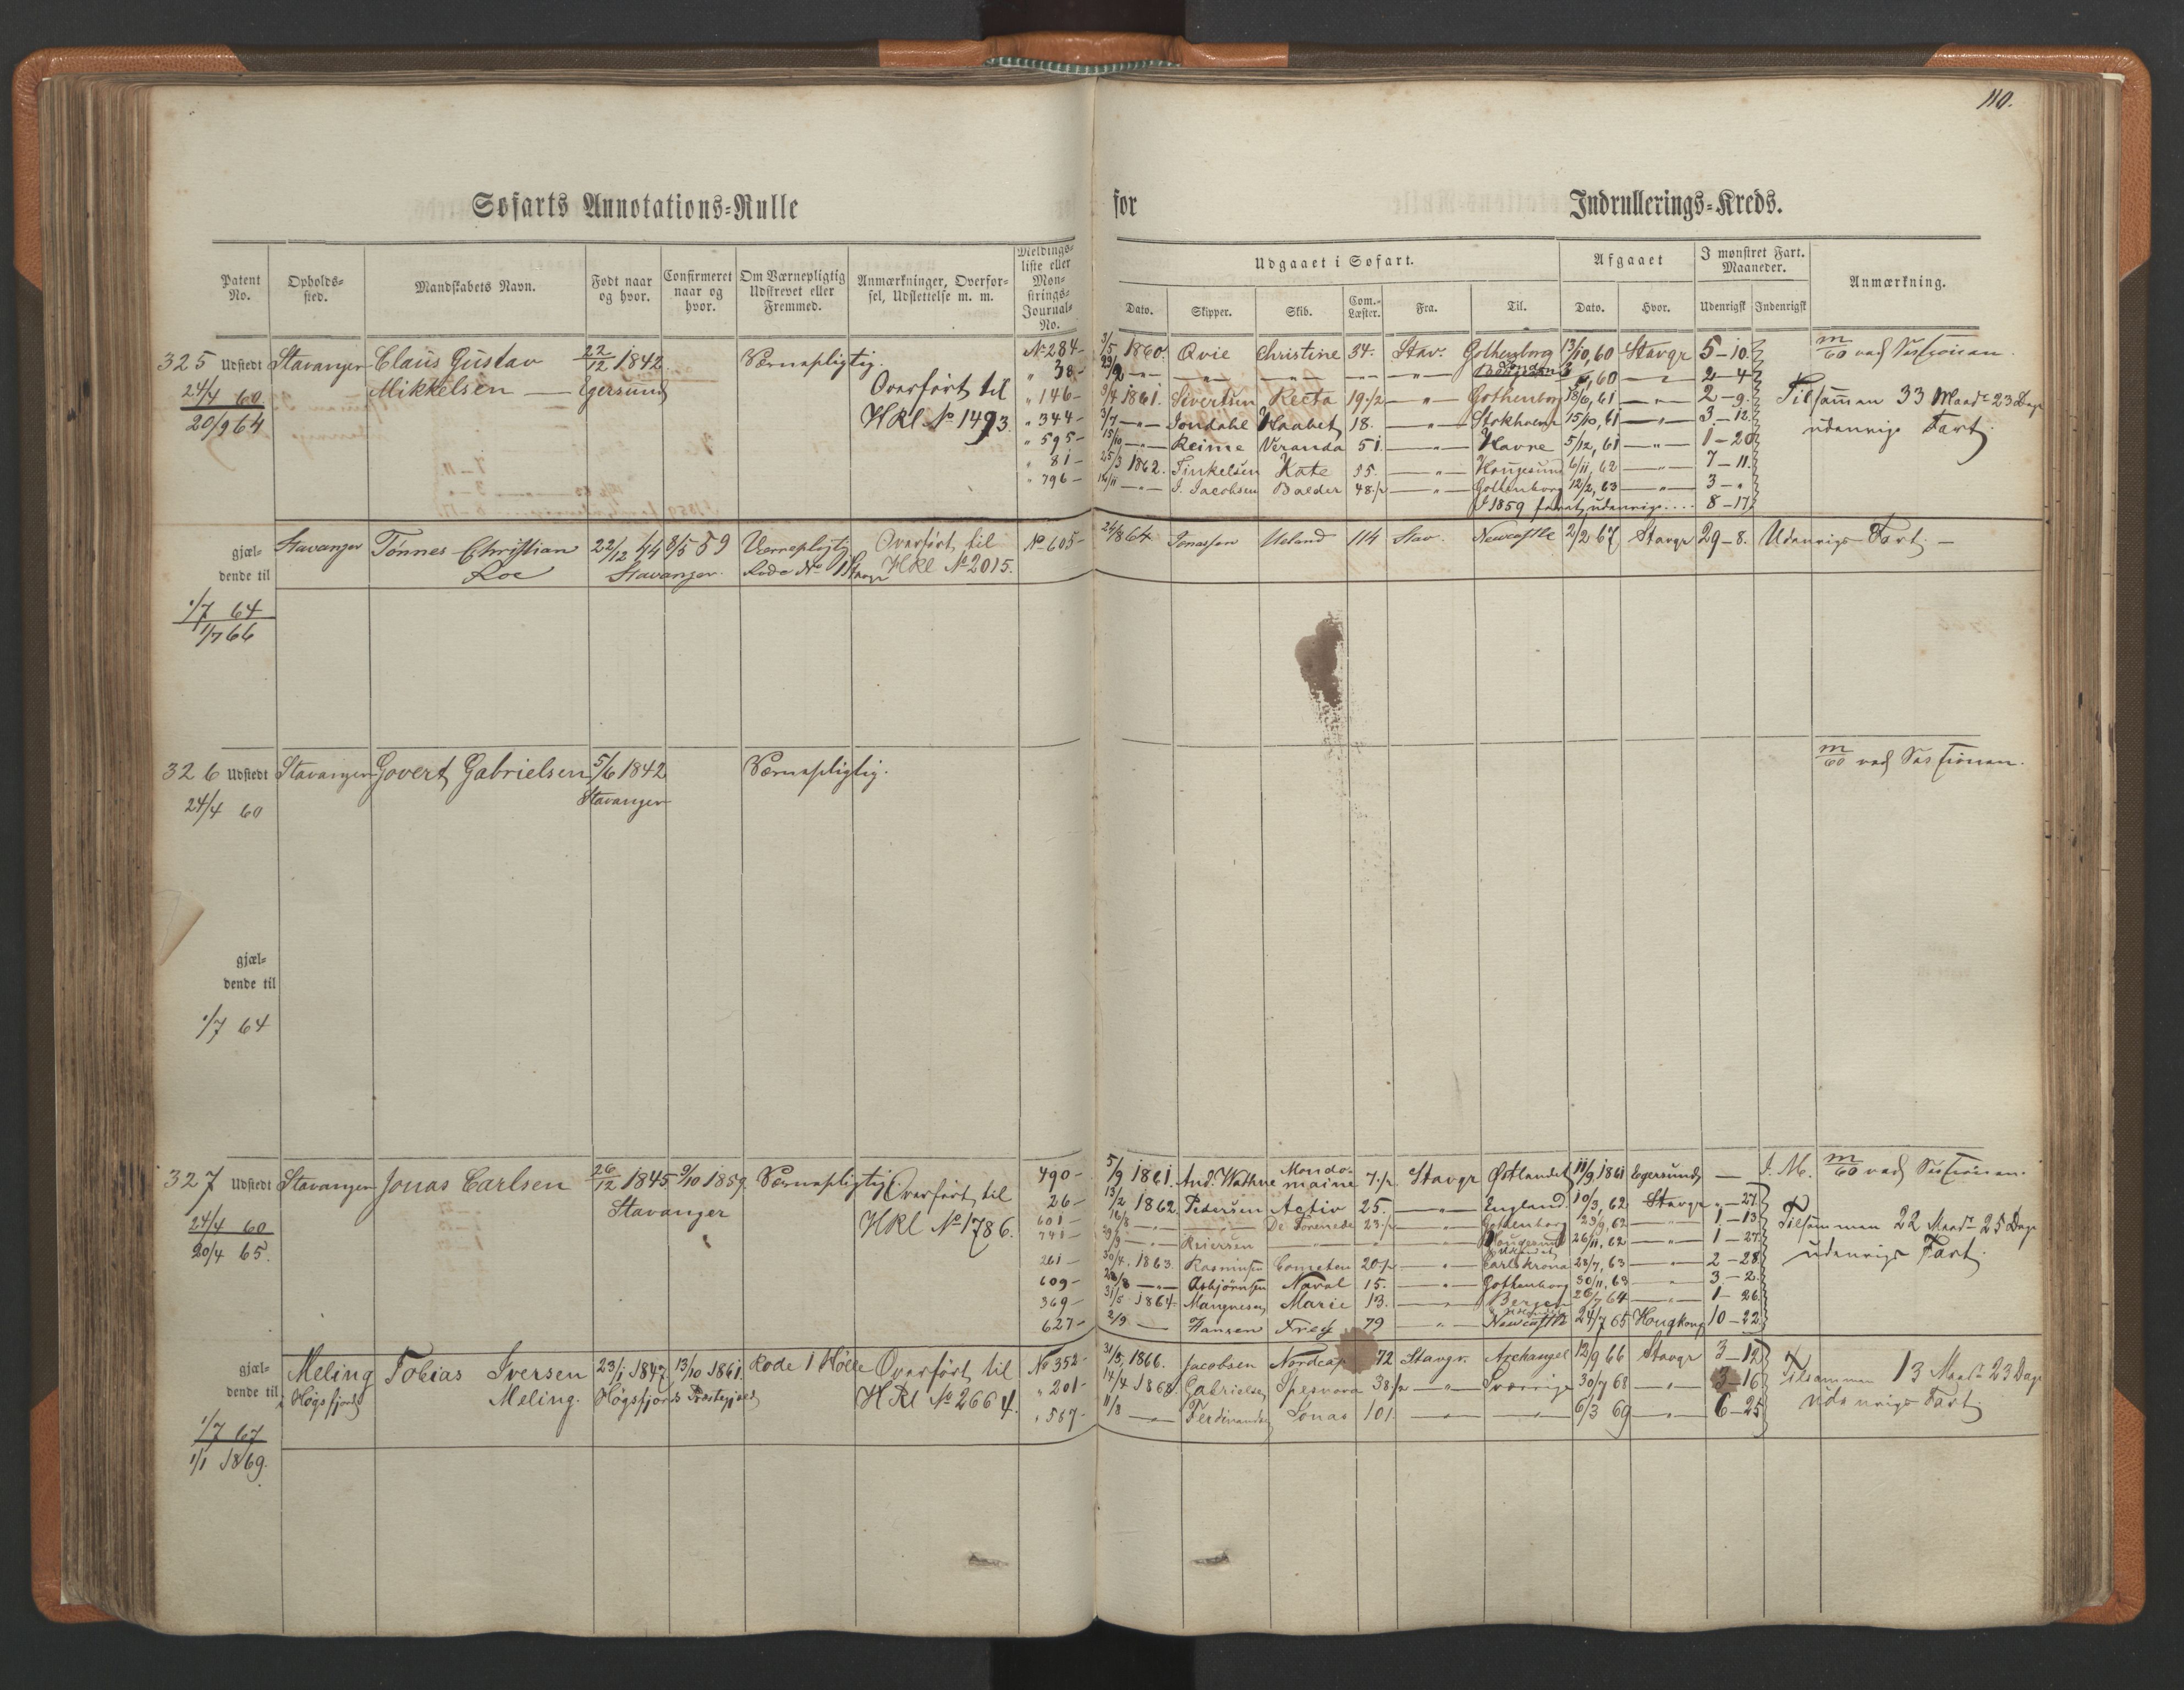 110.
Søfarts Annotations-Rulle for Indrullerings-Kreds.
Patent No. Opholds-sted. Mandskabets Navn. Født naar og hvor. Confirmeret naar og hvor. Om Værnepligtig Udskrevet eller Fremmed. Anmærkninger, Overfør-sel, Udslettelse m. m. Meldings-liste eller Møn-strings-Journal-No.
Udgaaet i Søfart. Afgaaet I mønstret Fart. Maaneder. Anmærkning.
Dato. Skipper. Skib. Com.-Læster. Fra. Til. Dato. Hvor. Udenrigsk Indenrigsk
325 Udstedt Stavanger Claus Gustav 22/12 1842 Værnepligtig. No 284 - 3/5 1860. Qvie Christine 34. Stav. Gothenborg 13/10, 60 Stavgr 5 - 10.
24/4 60 Mikkelsen — Egersund Overført til " 38 - — " — 60 — " — 2 - 4
20/9 64 HKl No 1493. " 146 - 9/4 1861. Sivertsen Recta 19 1/2 — " — Gothenborg 18/6, 61 — " — 2 - 9. Tilsammen 33 Maadr 23 Dage
" 344 - 3/7 — " — Jondahl Haabet 18. — " — Stokholm 15/10, 61 — " — 3 - 12. udenrigs Fart.
" 595 - 15/10 — " — Reime Veranda 51. — " — Havre 5/12, 61 — " — 1 - 20
" 81 - 25/3 1862. Tinkelsen Kate 35. — " — Hougesund 6/11, 62 — " — 7 - 11.
" 796 - — " — J. Jacobsen Balder 48 1/2 — " — Gothenborg 12/2, 63 — " — 3 - "
I 1859 faret udenrigs.... 8 - 17
gjæl-dende til Stavanger Tønnes Christian 22/12 44 8/5 59 Værnepligtig Overført til No 605 - 24/8 64 Jonassen Ueland 114 Stav. Newcastle 2/2 67 Stavgr 29 - 8. Udenrigs Fart. —
Roe Stavanger. Rode No 1 HKl No 2015.
1/7 64
1/7 66
326 Udstedt Stavanger Govert Gabrielsen 5/6 1842 Værnepligtig.
24/4 60 Stavanger
gjæl-
dende til
1/7 64
327 Udstedt Stavanger Jonas Carlsen 26/12 1845 9/10 1859. Værnepligtig. Overført til 490 - 5/9 1861. And. Wathne Mondo-maine 7 1/2 Stavgr Østlandet 11/9 1861 Egersund — I. M.
24/4 60 Stavanger HKl No 1786. 26 - 13/2 1862. Pedersen Activ 25. — " — England 10/3, 62 Stavgr " - 27.
20/4 65. 601 - 16/8 — " — De Forenede 23 1/2 — " — Gothenborg 23/9, 62 — " — 1 - 13 Tilsammen 22 Maadr 25 Dage
741 - — " — Reiersen — " — Hougesund 26/11, 62 — " — 1 - 27. udenrigs Fart.
261 - 30/4, 1863. Rasmussen Cometen 20 1/2 — " — Carlskrona 28/7, 63 — " — 2 - 28
609 - — " — Asbjørnsen Naval 15. — " — Gothenborg 30/11, 63 — " — 3 - 2.
369 - 31/5 1864. Mangnesen Marie 13. — " — Bergen 26/7 64 — " — 1 - 26
627 - 2/9 — Hansen Freij 79 — " — Newcastle 24/7 65 Hongkong 10 - 22
gjæl-dende til Meling Tobias Iversen 23/1 1847 13/10 1861. Rode 1 Holle Overført til No 352 - 31/5, 1866. Jacobsen Nordcap 72 Stavgr. Archangel 12/9 66 Stavgr 3 - 12 Tilsammen 13 Maadr 23 Dage
i Høgsfjord Meling. Høgsfjords Præstegjæld HKl No 2664. " 201 - 14/4 1868. Gabrielsen Spesnova 38 1/2 — " — Sverrige 30/7 68 — " — 3 - 16 udenrigs Fart.
1/7 67 " 567 - 11/8 — " — Ferdinandsen Jonas 101. — " — — " — 6/3 69 — " — 6 - 25
1/1 1869.